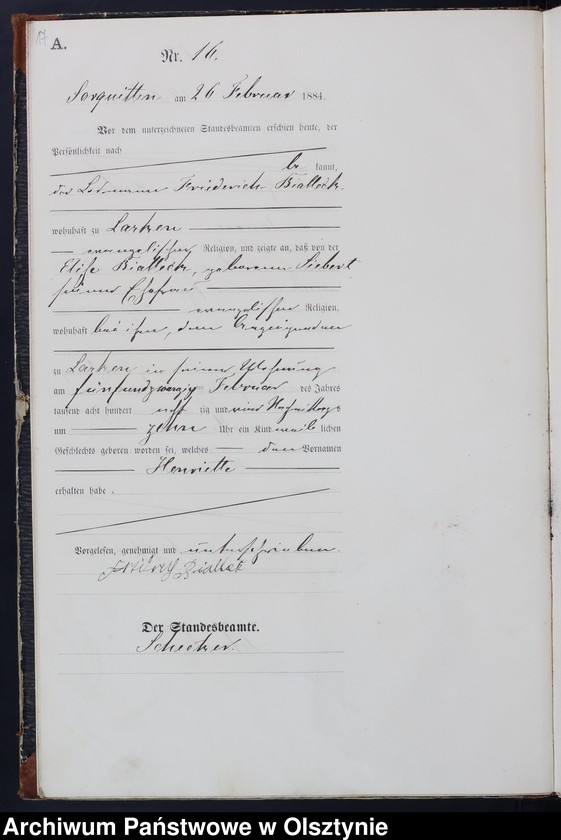 17
A.
Nr. 16.
Sorquitten am 26 Februar 1884.
Vor dem unterzeichneten Standesbeamten erschien heute, der
Persönlichkeit nach
be kannt,
der Losmann Friederich Bialleck
wohnhaft zu Larken
evangelischer Religion, und zeigte an, daß von der
Elise Bialleck, geborenen Siebert
seiner Ehefrau
evangelischer Religion,
wohnhaft bei ihm, dem Anzeigenden
zu Larken in seiner Wohnung
am fünfundzwanzig Februar des Jahres
tausend acht hundert acht zig und vier Nachmittags
um zehn Uhr ein Kind weib lichen
Geschlechts geboren worden sei, welches den Vornamen
Henriette
erhalten habe.
Vorgelesen, genehmigt und unterschrieben
Biallek
Der Standesbeamte.
Archiwum Państwowe w Olsztynie